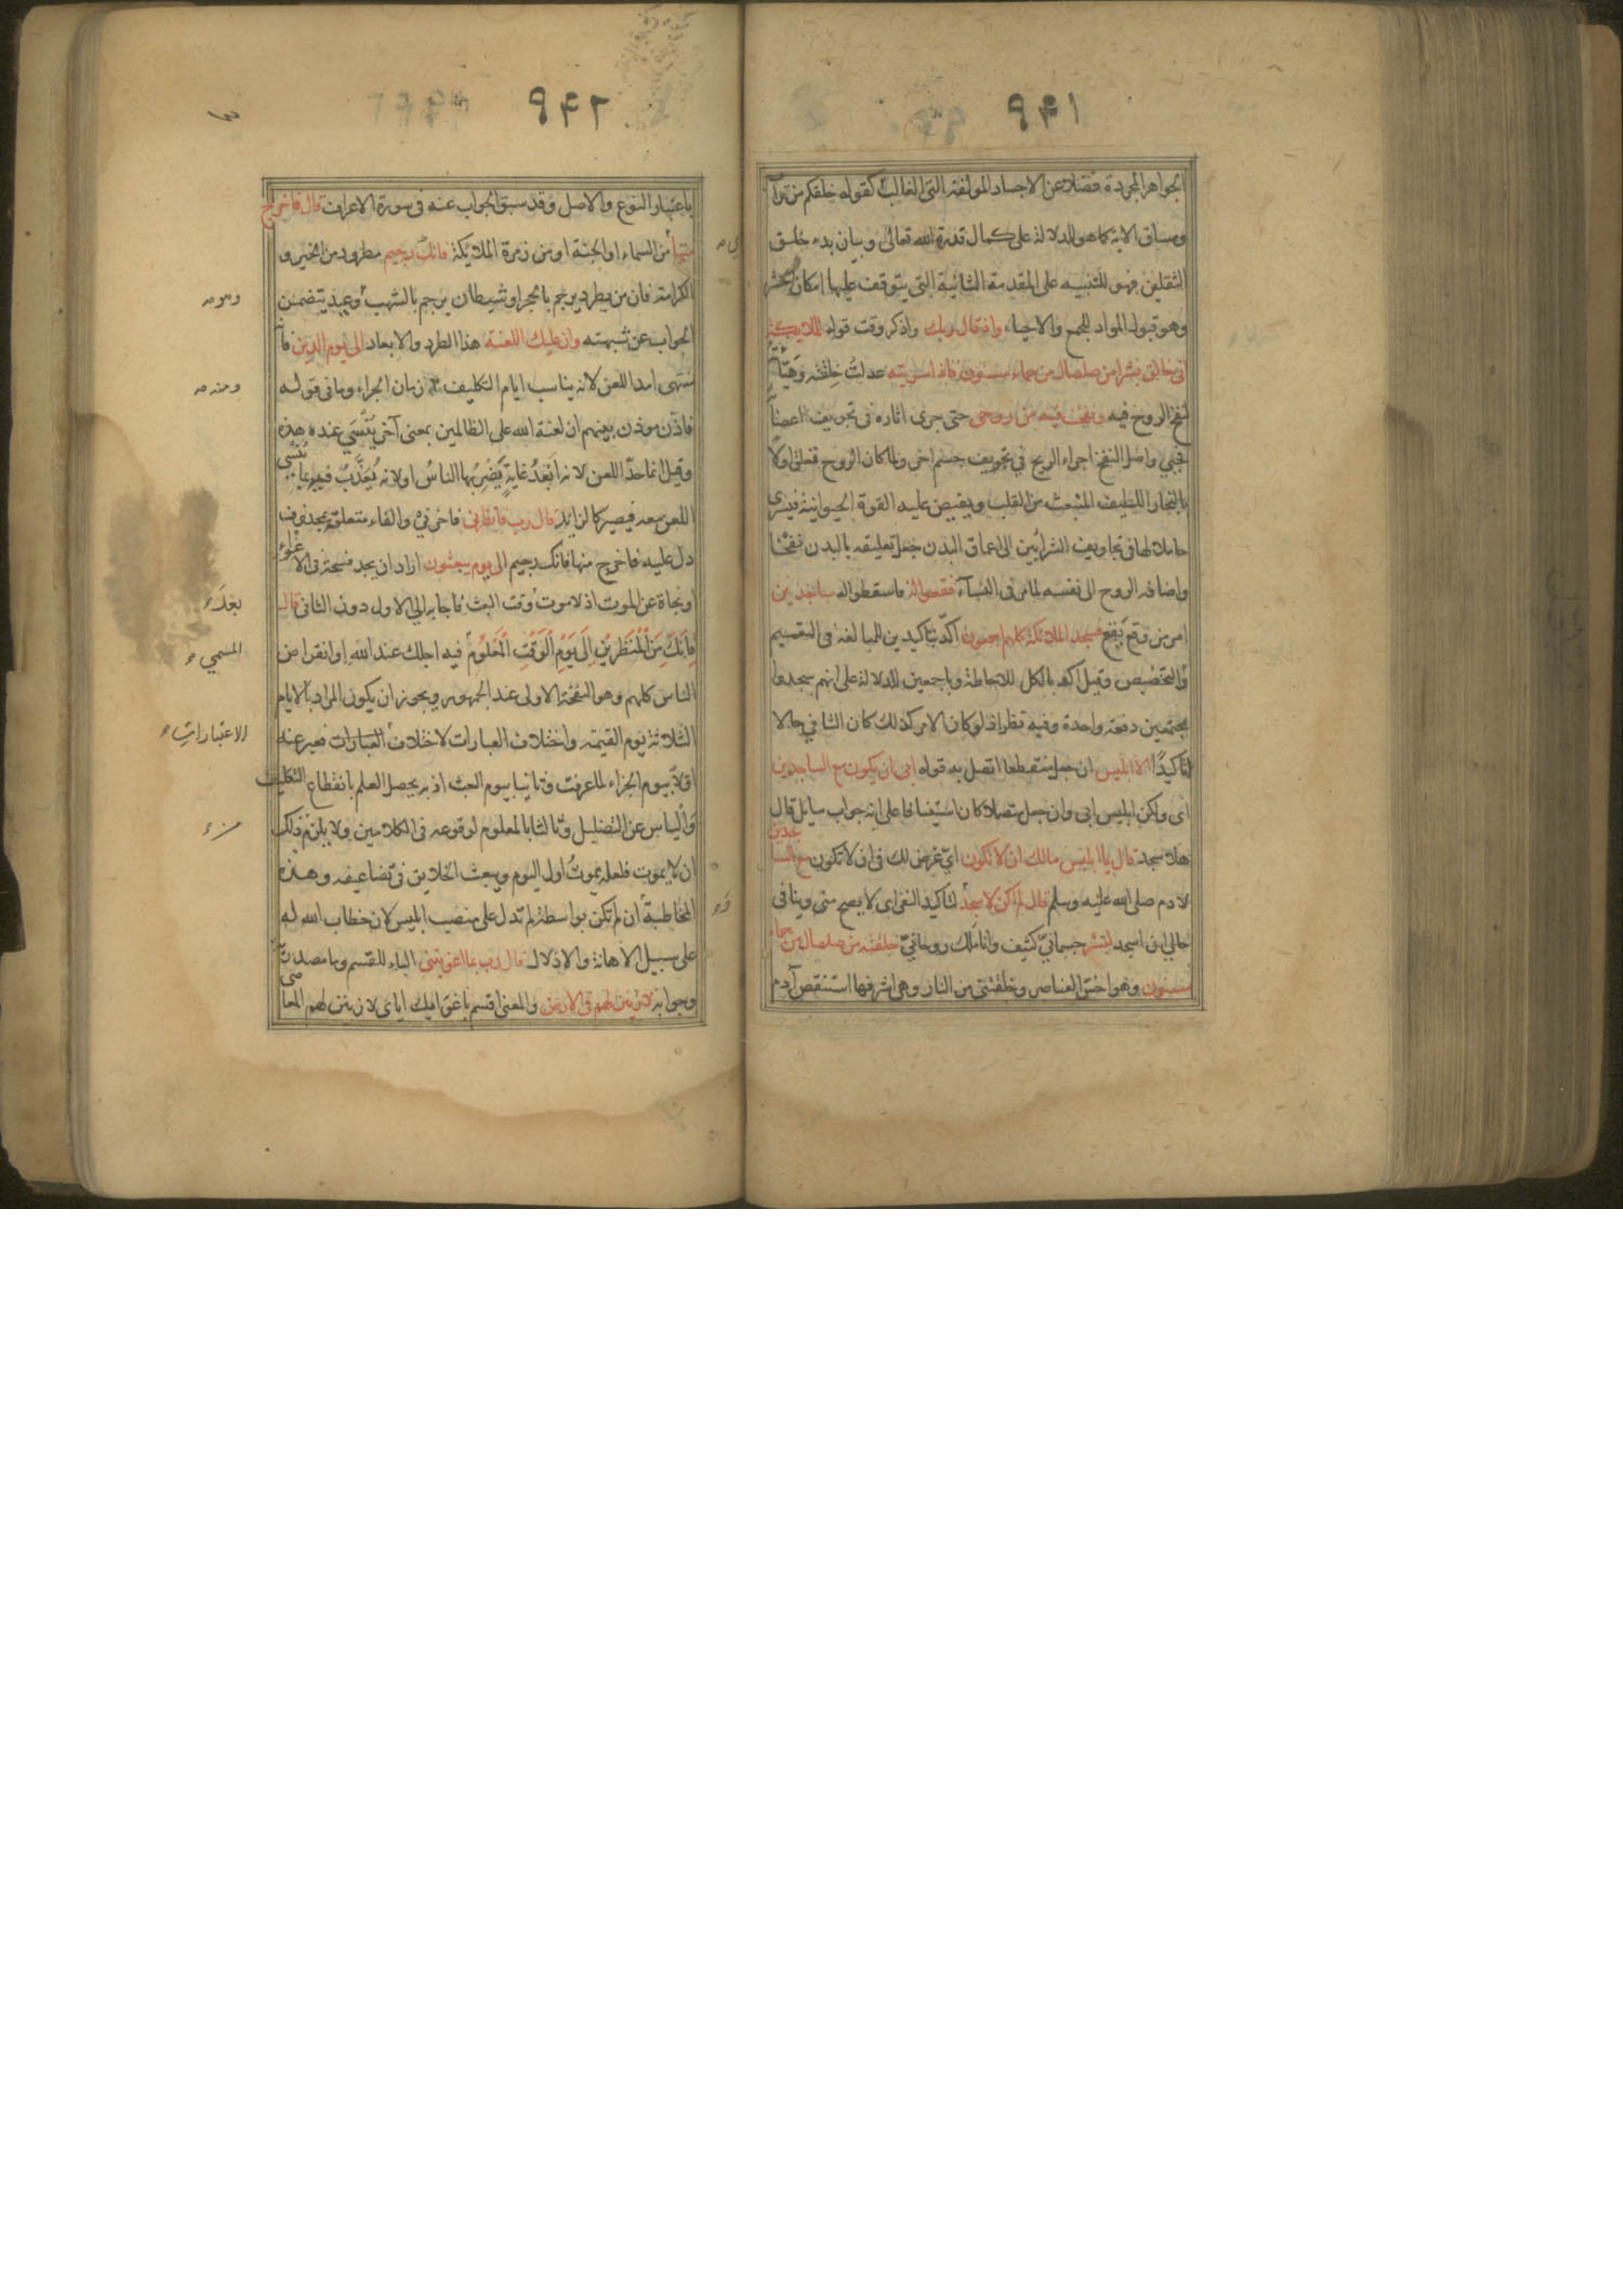 ٩٤١
الجواهر المجردة فضلا عن الاجساد المولفة التى الغالب كقوله خلقكم من تراب
ومساق الاية كما هو للدلالة على كمال قدرة الله تعالى وبيان بدء خلق
الثقلين فهو للتنبيه على المقدمة الثانية التى يتوقف عليها امكان الحشر
وهو قبول المواد للجمع والاحياء واذ قال ربك واذكر وقت قوله للملائكة
انى خالق بشرا من صلصال من حماء مسنون فاذا سويته عدلتُ خلقته وهيّأته
لنفخ الروح فيه ونفخت فيه من روحى حتى جرى اثاره فى تجويف اعضائه
فحيي واصل النفخ اجراء الريح في تجويف جسم اخر ولما كان الروح تتعلق اولا
بالبخار اللطيف المنبعث من القلب ويفيض عليه القوة الحيوانية فيسرى
حاملا لها فى تجاويف الشرايين الى اعماق البدن جعل تعليقه بالبدن نفخا
واضافه الروح الى نفسه لما مر فى النساء فقعوا له فاسقطوا له ساجدين
امر من وقع يقع فسجد الملائكة كلهم اجمعون اكد بتاكيدين للمبالغة فى التعميم
والتخصيص وقيل اكد بالكل للاحاطة وباجمعين للدلالة على انهم سجدوا
مجتمعين دفعة واحدة وفيه نظر اذ لو كان الامر كذلك كان الثاني حالا
لا تاكيدًا الا ابليس ان جعل منقطعا اتصل به قوله ابى ان يكون مع الساجدين
اى ولكن ابليس ابى وان جعل متصلا كان استينافا على انه جواب سايل قال
هلا سجد قال يا ابليس مالك ان لا تكون ايّ غرض لك فى ان لا تكون مع الساجدين
لادم صلى الله عليه وسلم قال لم اكن لاسجد لتاكيد النفى اى لا يصح منى وينافى
حالي ان اسجد لبشر جسمانيّ كثيف وانا ملك روحانيّ خلقته من صلصال من حماء
مسنون وهو اخسّ العناصر وخلقتنى من النار وهى اشرفها استنقص آدم
٩٤٢
باعتبار النوع والاصل وقد سبق الجواب عنه فى سورة الاعراف قال فاخرج
منها من السماء او الجنة او من زمرة الملائكة فانك رجيم مطرود من الخير و
الكرامة فان من يطرد يرجم بالحجر او شيطان يرجم بالشهب وعيد يتضمن
وهو
الجواب عن شبهته وان عليك اللعنة هذا الطرد والابعاد الى يوم الدين فانه
منتهى امد اللعن لانه يناسب ايام التكليف زمان الجزاء وما فى قوله
ومنه
فاذّن موذن بينهم ان لعنة الله على الظالمين بمعنى آخر يُنسَي عنده هذه
وقيل انما حدّ اللعن لانه اَبعَدُ غايةٍ يَضْرِبُها الناسُ او لانه يُعَذَّبُ فيه بما يُنْسي
اللعن معه فيصير كالزايد قال رب فانظرنى فاخرنى والفاء متعلقة بمحذوف
دل عليه فاخرج منها فانك رجيم الى يوم يبعثون اراد ان يجد فسحة فى الاغواء
او نجاة عن الموت اذ لا موت وقت البعث فاجابه الي الاول دون الثانى قال
بعد
فَاِنَّكَ مِنَ الْمُنْظَرِيْنَ اِلَى يَوْمِ الْوَقْتِ الْمَعْلُومِ فيه اجلك عند الله او انقراض
المسمي
الناس كلهم وهو النفخة الاولى عند الجمهور ويجوز ان يكون المراد بالايام
الثلاثة يوم القيمة واختلاف العبارات لاختلاف العبارات فعبر عنه
الاعتبارات
اولاً بيوم الجزاء لما عرفت وثانيا بيوم البعث اذ به يحصل العلم بانقطاع التكليف
والياس عن التضليل وثالثا بالمعلوم لوقوعه فى الكلامين ولا يلزم ذلك
من
ان لا يموت فلعله يموتُ اول اليوم ويبعث الخلايق فى تضاعيفه وهذه
المخاطبة ان لم تكن بواسطة لم تدل على منصب ابليس لان خطاب الله له
على سبيل الاهانة والاذلال قال رب بما اغويتنى الباء للقسم وما مصدرية
وجوابه لازينن لهم فى الارض والمعنى اقسم باغوايك اياى لازينن لهم المعاصى